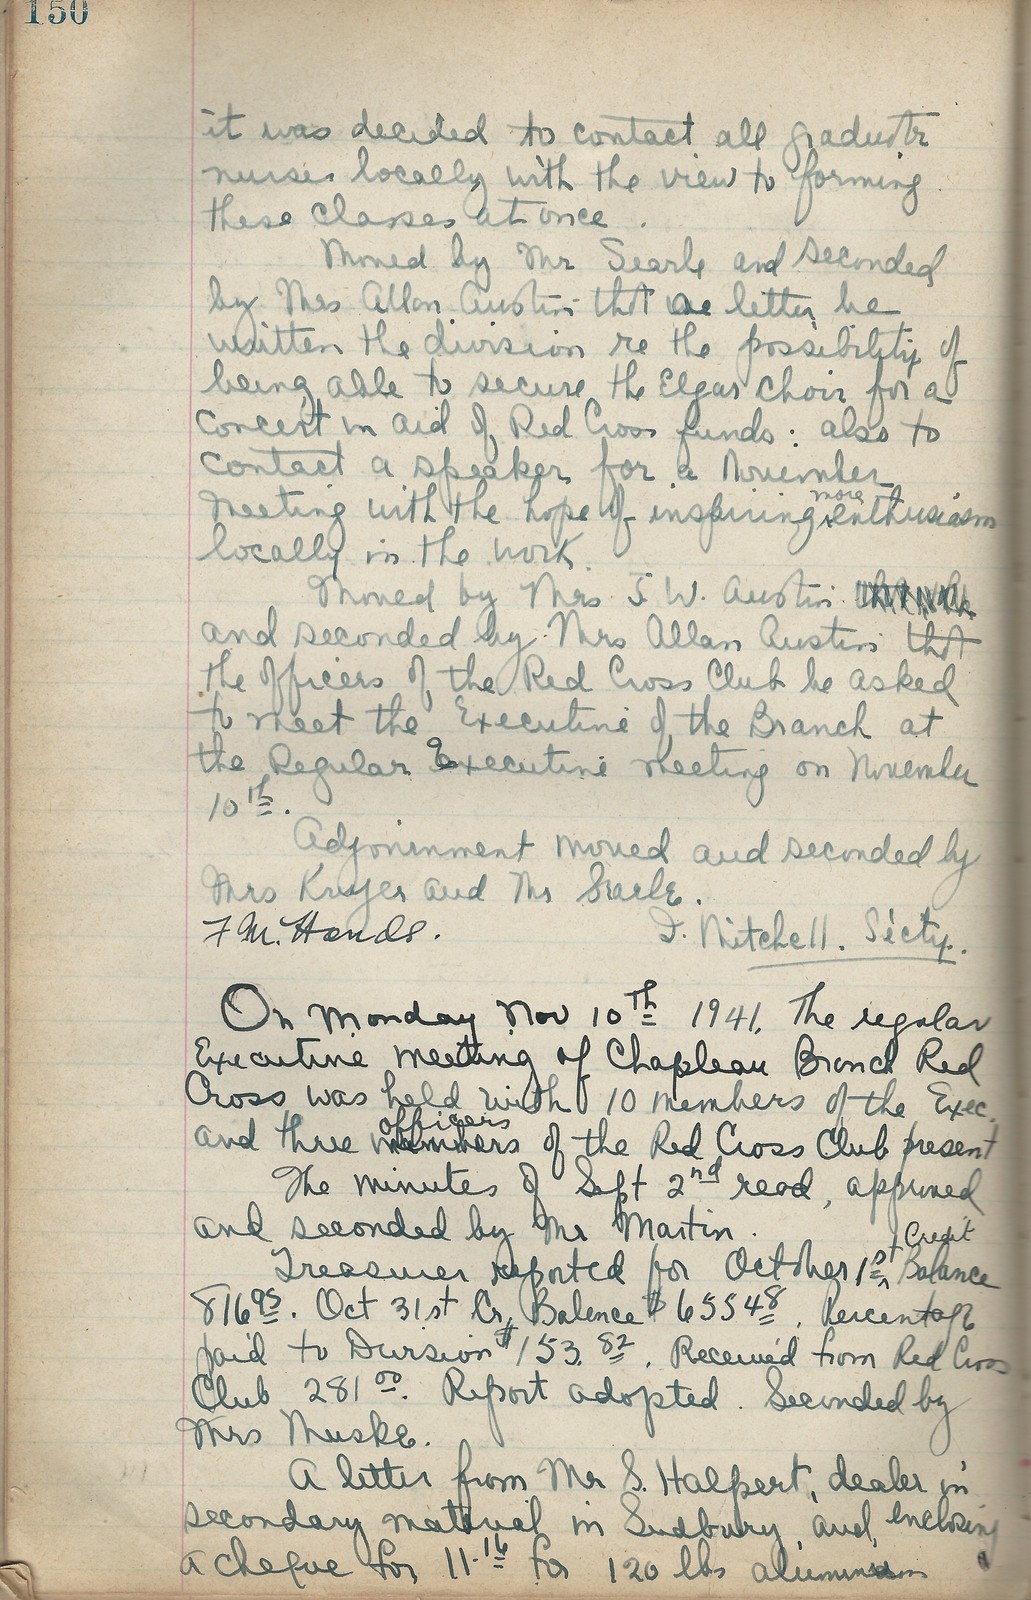 150
it was decided to contact all graduate
nurses locally with the view to forming
these classes at once.
Moved by Mr Searle and seconded
by Mrs Allan Austin that a letter be
written the division re the possibility of
being able to secure the Elgar Choir for a
concert in aid of Red Cross funds: also to
contact a speaker for a November
meeting with the hope of inspiring more enthusiasm
locally in the work.
Moved by Mrs J. W. Austin
and seconded by Mrs Allan Austin that
the officers of the Red Cross Club be asked
to meet the Executive of the Branch at
the Regular Executive meeting on November
10th.
Adjournment moved and seconded by
Mrs Kruger and Mr Searle.
F M. Hands. I. Mitchell. Sec'ty.
On Monday Nov 10th 1941, The regular
Executive meeting of Chapleau Branch Red
Cross was held with 10 members of the Exec.
and three officers of the Red Cross Club present
The minutes of Sept 2nd read, approved
and seconded by Mr Martin.
Treasurer reported for October 1st Credit Balance
816 95. Oct 31st Cr. Balance $655 48. Percentage
paid to Division $153.82. Received from Red Cross
Club 281 00. Report adopted. Seconded by
Mrs Muske.
A letter from Mr S. Halpert, dealer in
secondary material in Sudbury, and enclosing
a cheque for 11.16 for 120 lbs aluminum